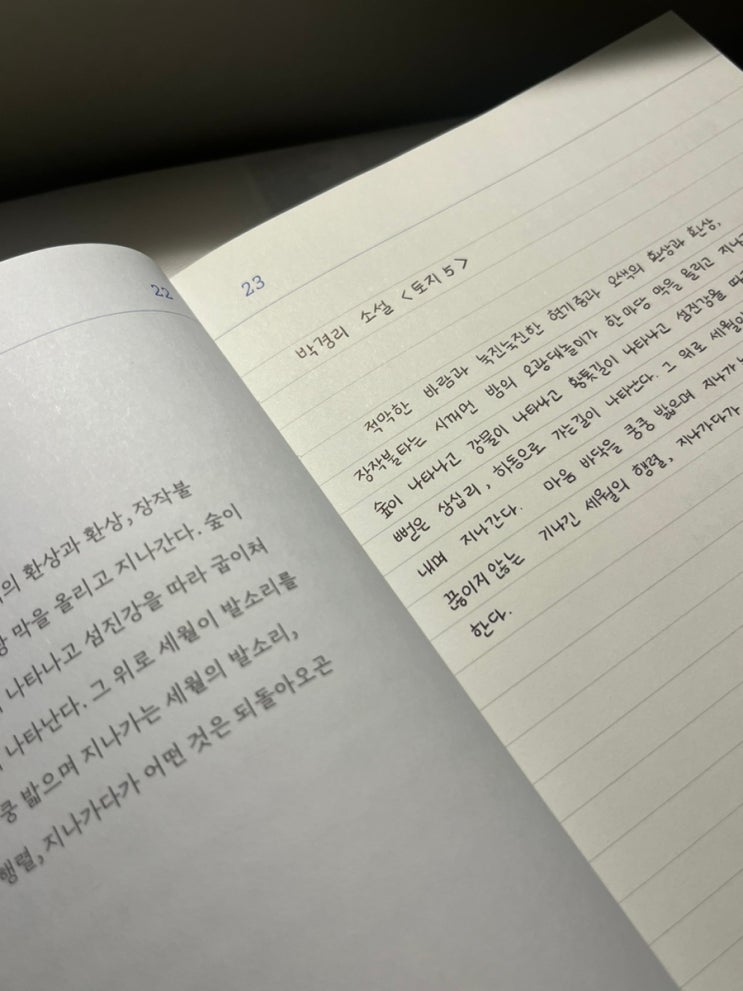 22
의 환상과 환상, 장작불
막을 올리고 지나간다. 숲이
나타나고 섬진강을 따라 굽이쳐
나타난다. 그 위로 세월이 발소리를
쿵 밟으며 지나가는 세월의 발소리,
행렬, 지나가다가 어떤 것은 되돌아오곤
23
박경리 소설 <토지 5>
적막한 바람과 눅진눅진한 현기증과 오색의 환상과 환상,
장작불타는 시꺼먼 밤의 오광대놀이가 한마당 막을 올리고
숲이 나타나고 강물이 나타나고 황톳길이 나타나고 섬진강을
뻗은 삼십리, 하동으로 가는길이 나타난다. 그 위로 세월이
내며 지나간다. 마음 바닥을 쿵쿵 밟으며 지나가
끊이지않는 기나긴 세월의 행렬, 지나가다가
한다.